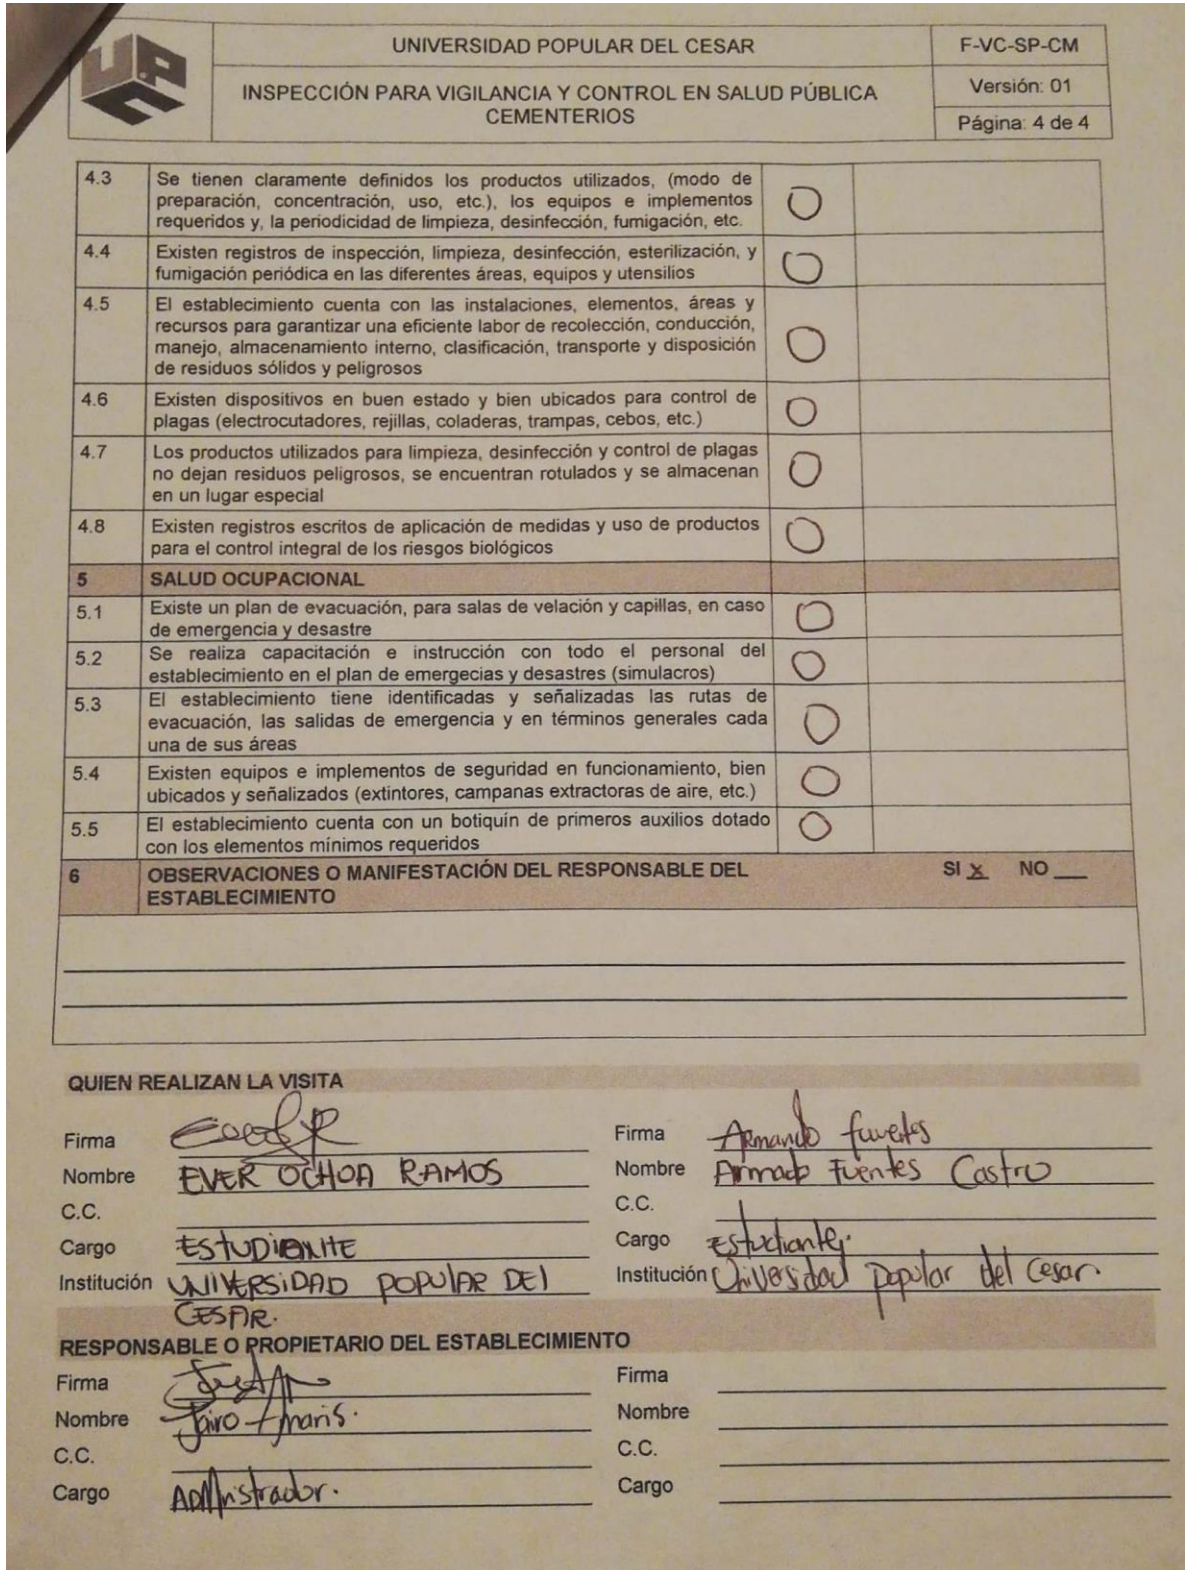 U.P.C
UNIVERSIDAD POPULAR DEL CESAR
F-VC-SP-CM
INSPECCIÓN PARA VIGILANCIA Y CONTROL EN SALUD PÚBLICA
CEMENTERIOS
Versión: 01
Página: 4 de 4
4.3 Se tienen claramente definidos los productos utilizados, (modo de
preparación, concentración, uso, etc.), los equipos e implementos
requeridos y, la periodicidad de limpieza, desinfección, fumigación, etc. O
4.4 Existen registros de inspección, limpieza, desinfección, esterilización, y
fumigación periódica en las diferentes áreas, equipos y utensilios O
4.5 El establecimiento cuenta con las instalaciones, elementos, áreas y
recursos para garantizar una eficiente labor de recolección, conducción,
manejo, almacenamiento interno, clasificación, transporte y disposición
de residuos sólidos y peligrosos O
4.6 Existen dispositivos en buen estado y bien ubicados para control de
plagas (electrocutadores, rejillas, coladeras, trampas, cebos, etc.) O
4.7 Los productos utilizados para limpieza, desinfección y control de plagas
no dejan residuos peligrosos, se encuentran rotulados y se almacenan
en un lugar especial O
4.8 Existen registros escritos de aplicación de medidas y uso de productos
para el control integral de los riesgos biológicos O
5 SALUD OCUPACIONAL
5.1 Existe un plan de evacuación, para salas de velación y capillas, en caso
de emergencia y desastre O
5.2 Se realiza capacitación e instrucción con todo el personal del
establecimiento en el plan de emergecias y desastres (simulacros) O
5.3 El establecimiento tiene identificadas y señalizadas las rutas de
evacuación, las salidas de emergencia y en términos generales cada
una de sus áreas O
5.4 Existen equipos e implementos de seguridad en funcionamiento, bien
ubicados y señalizados (extintores, campanas extractoras de aire, etc.) O
5.5 El establecimiento cuenta con un botiquín de primeros auxilios dotado
con los elementos mínimos requeridos O
6 OBSERVACIONES O MANIFESTACIÓN DEL RESPONSABLE DEL
ESTABLECIMIENTO SI x NO
QUIEN REALIZAN LA VISITA
Firma
Nombre EVER OCHOA RAMOS
C.C.
Cargo ESTUDIANTE
Institución UNIVERSIDAD POPULAR DEL
CESAR.
Firma Armando fuentes
Nombre Armado Fuentes Castro
C.C.
Cargo Estudiante.
Institución Universidad popular del Cesar.
RESPONSABLE O PROPIETARIO DEL ESTABLECIMIENTO
Firma
Nombre Jairo Amaris.
C.C.
Cargo ADMnistrador.
Firma
Nombre
C.C.
Cargo